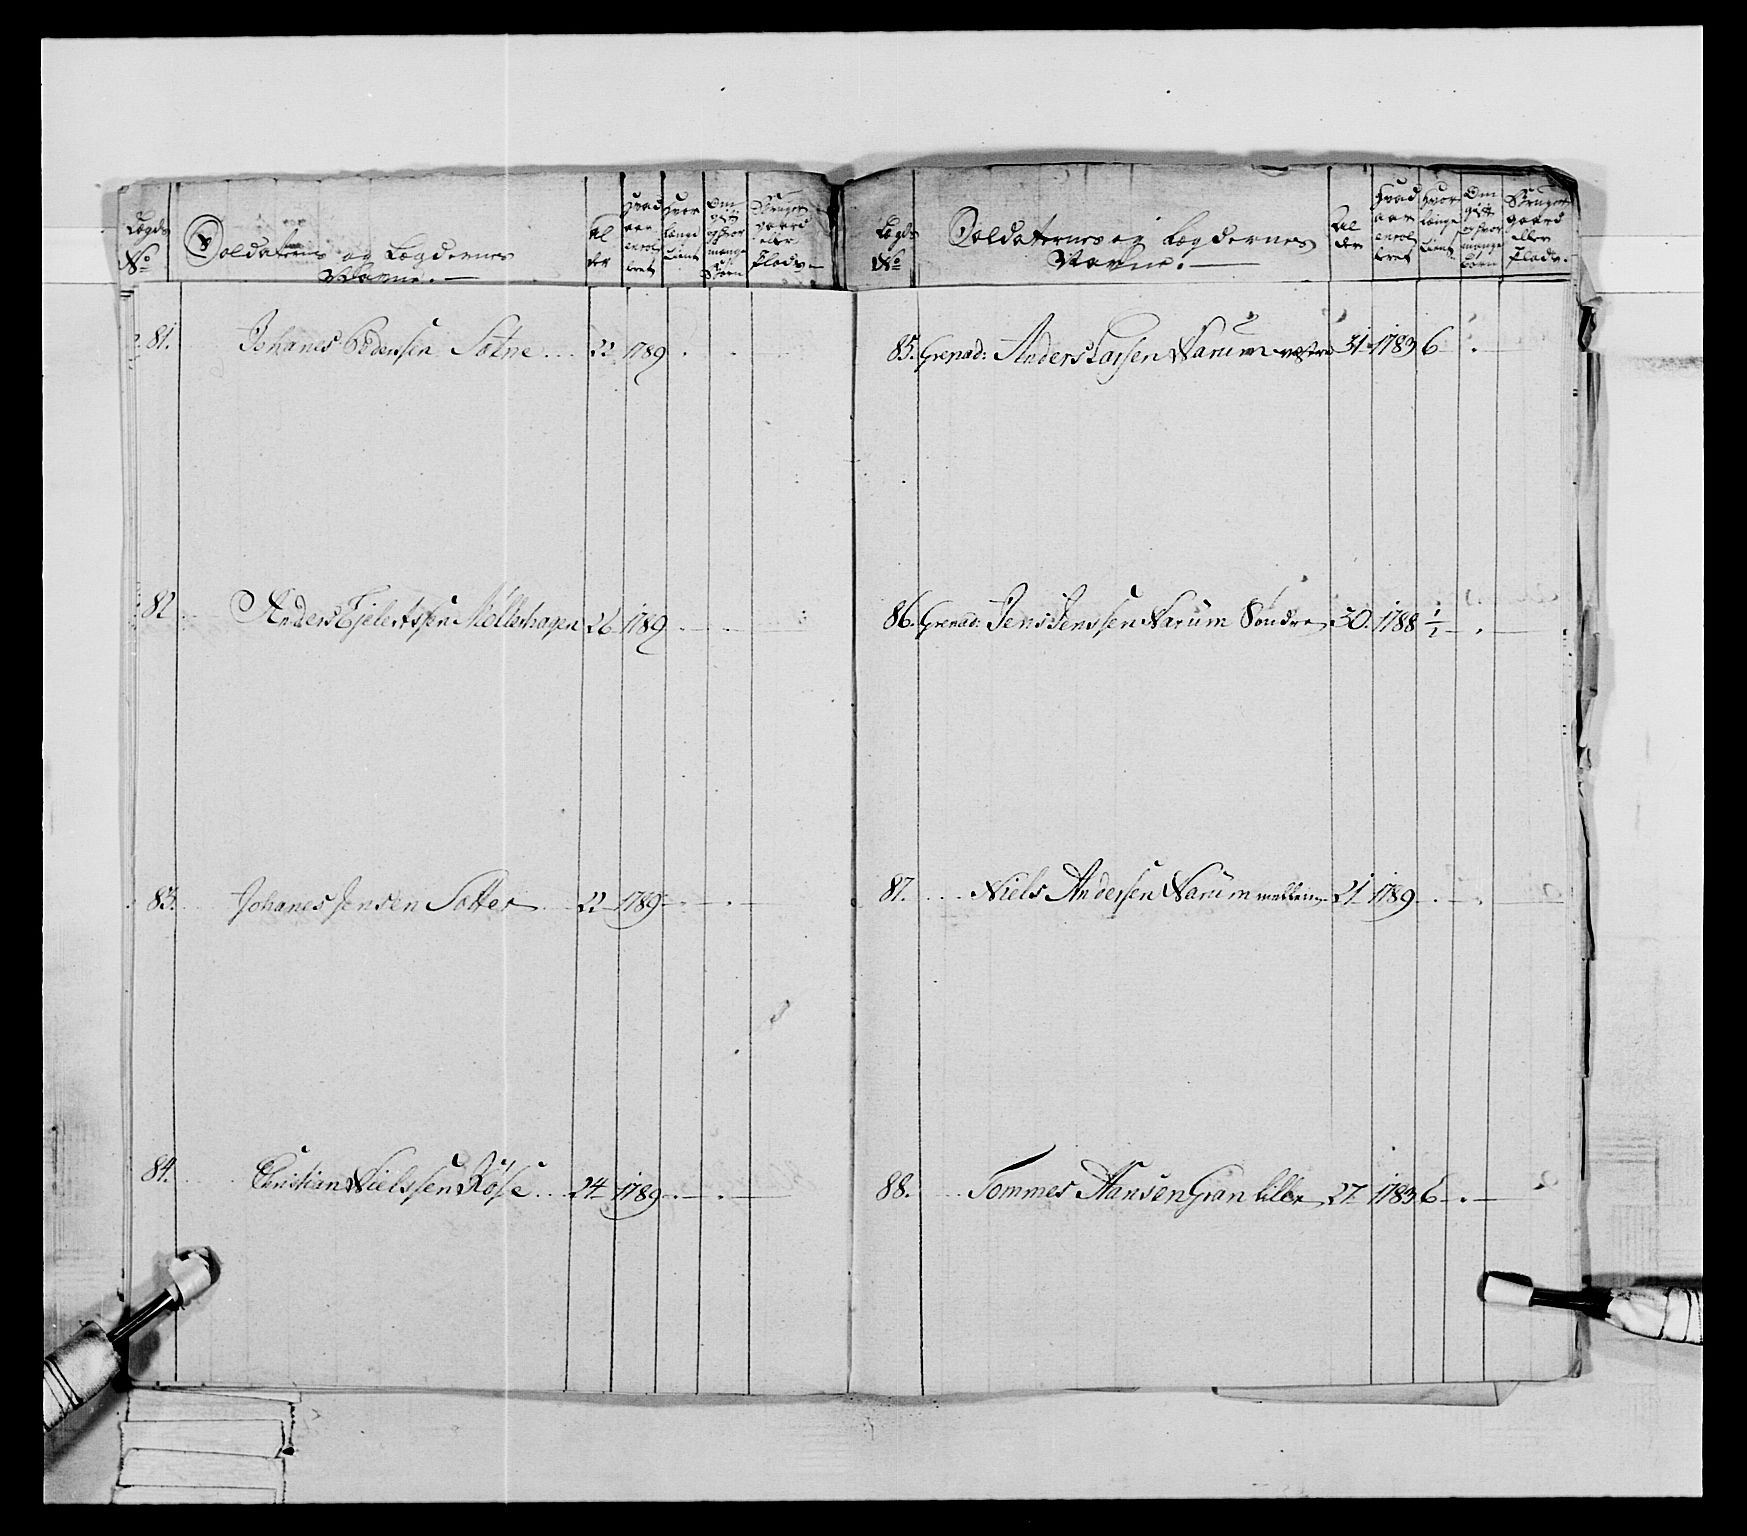 Lægds No
Soldaternes og Lægdernes Navne.
Al der
Hvad aar enrol leret
Hvor længe tient
Om gift og hvor mange Børn
Bruger gaard eller Plads
81. Johanes Pedersen Sotne 22 1789
82 Anders Ejlertssen Møllerhagen 26 1789
83. Johanes Jensen Sotter 22 1789
84. Christian Nielssen Røise 24 1789
Lægds No
Soldaternes og Lægdernes Navne.
Al der
Hvad aar enrol leret
Hvor længe tient
Om gift og hvor mange Børn
Bruger gaard eller Plads.
85. Grenad: Anders Larssen Narum vestre 31 1783 6
86. Grenad: Jens Jenssen Narum Søndre 30. 1788 1/1
87. Niels Andersen Narum mellem 21 1789
88. Tommes Hansen Gran lille 27 1783 6